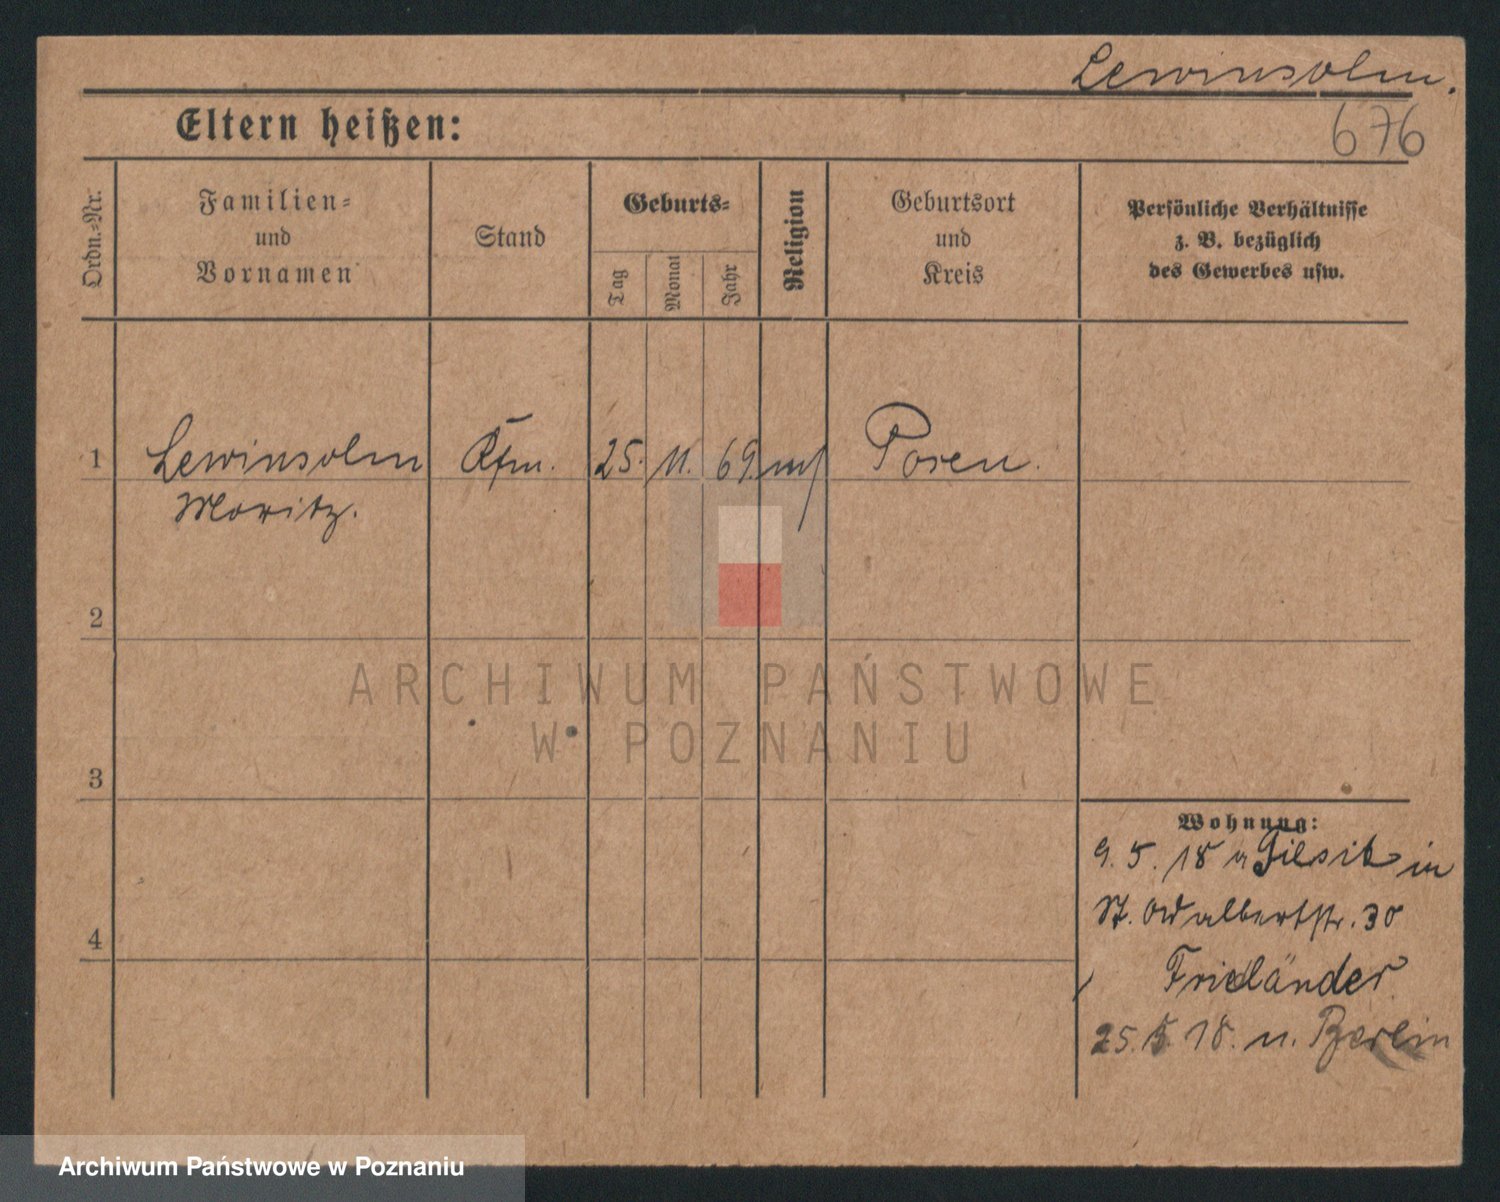 Lewinsohn.
676
Eltern heißen:
Ordn.-Nr.
Familien-
und
Vornamen
Stand
Geburts-
Tag
Monat
Jahr
Religion
Geburtsort
und
Kreis
Persönliche Verhältnisse
z. B. bezüglich
des Gewerbes usw.
1 Lewinsohn Kfm. 25. 11. 69. Posen.
Moritz.
2
3
4
Wohnung:
9. 5. 18 in
St. Adalbertstr. 30
Friedländer
25. 5 18. n. Berlin
ARCHIWUM PAŃSTWOWE
W POZNANIU
Archiwum Państwowe w Poznaniu